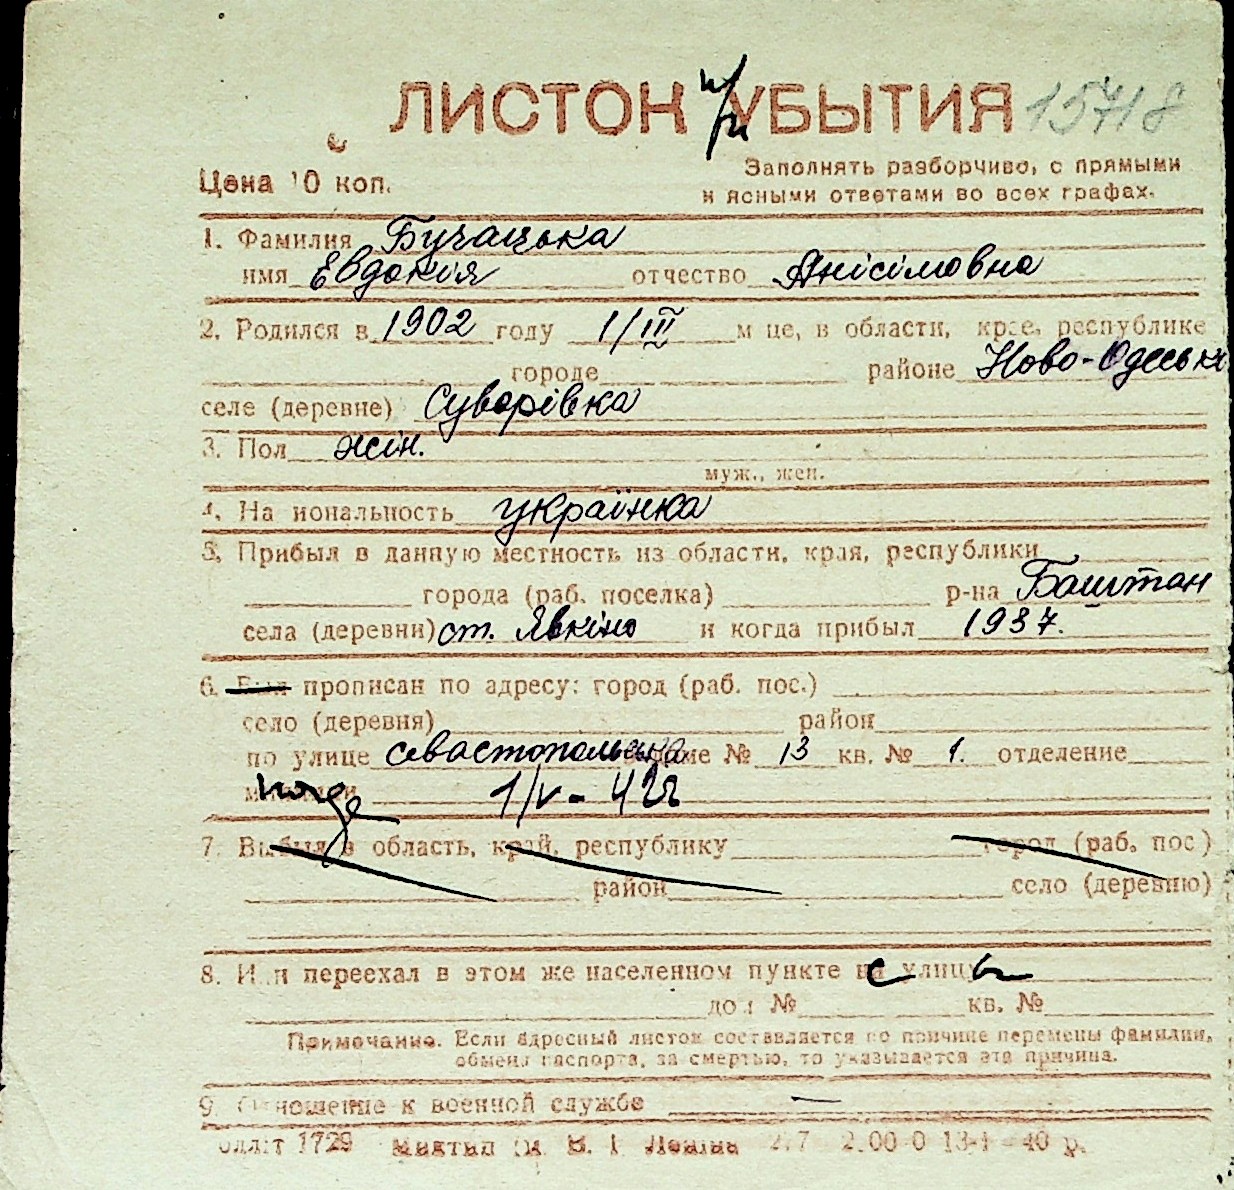 ЛИСТОК УБЫТИЯ 15718
Цена 10 коп.
Заполнять разборчиво, с прямыми
и ясными ответами во всех графах.
1. Фамилия Бучацька
имя Евдокія отчество Анісімовна
2. Родился в 1902 году 1/III м це, в области, крае, республике
городе районе Ново-Одеськ
селе (деревне) Суворівка
3. Пол жін.
муж., жен.
4. На иональность українка
5. Прибыл в данную местность из области, края, республики
города (раб. поселка) р-на Баштан
села (деревни) ст. Явкіно и когда прибыл 1937.
6. Был прописан по адресу: город (раб. пос.)
село (деревня) район
по улице севастопольська доме № 13 кв. № 1. отделение
милиции 1/V-
7. Выбыл в область, край, республику город (раб. пос)
район село (деревню)
8. Или переехал в этом же населенном пункте с улицы
дом № кв. №
Примечание. Если адресный листок составляется по причине перемены фамилии,
обмена паспорта, за смертью, то указывается эта причина.
9. Отношение к военной службе —
1729 В. І Леніна 40 р.